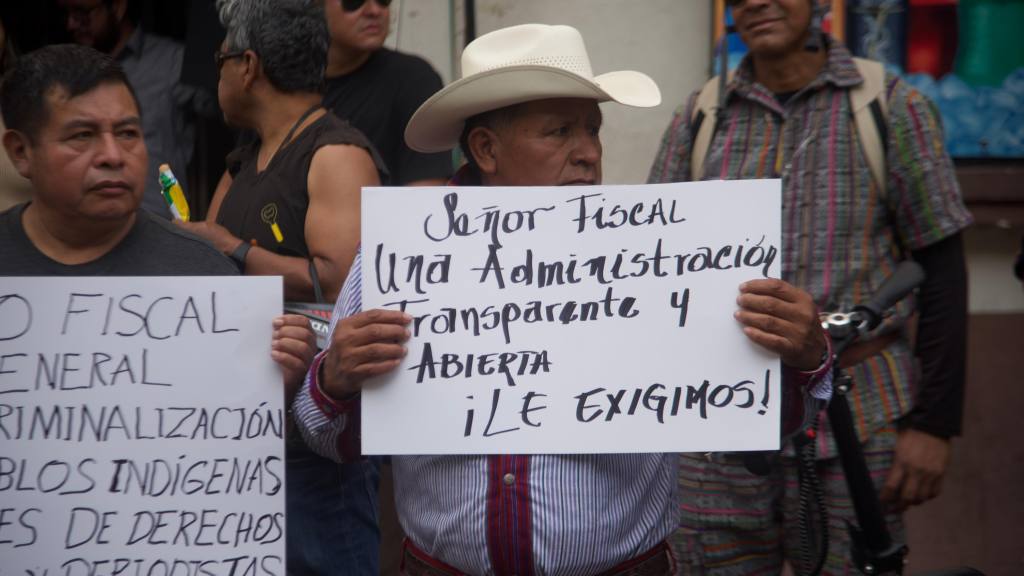 Señor Fiscal
Una Administración
Transparente y
Abierta
¡LE EXIGIMOS!
O FISCAL
ENERAL
RIMINALIZACIÓN
BLOS INDÍGENAS
ES DE DERECHOS
PERIODISTAS